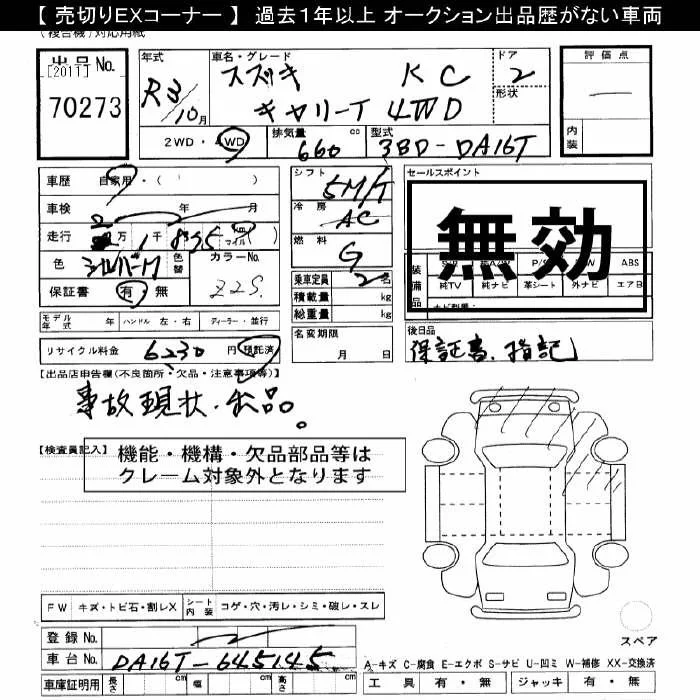 【 売切りEXコーナー 】 過去1年以上 オークション出品歴がない車両
(複合機)対応用紙
出品No. [2011] 70273
年式 R3/10月
車名・グレード スズキ KC キャリーT 4WD
ドア 2
形状
評価点 ―
内装
2WD・4WD
排気量 660 cc
型式 3BD-DA16T
車歴 自家用・( )
車検 年 月
走行 万 1千 835 km マイル
色 シルバーM 色替 カラーNo. Z2S
保証書 有・無
シフト 5M/T
冷房 AC
燃料 G
乗車定員 2名
積載量 kg
総重量 kg
セールスポイント
無効
装備品 S/R 純A/W P/S P/W ABS
純TV 純ナビ 革シート 外ナビ エアB
モデル年式 年 ハンドル 左・右 ディーラー・並行
名変期限 月 日
後日品 保証書.指記
リサイクル料金 6230 円 預託済
【出品店申告欄(不良箇所・欠品・注意事項等)】
事故現状.出品。
【検査員記入】
機能・機構・欠品部品等は
クレーム対象外となります
FW キズ・トビ石・割レX シート内装 コゲ・穴・汚レ・シミ・破レ・スレ
登録No.
車台No. DA16T-645145
車庫証明用 長さ cm 幅 cm 高さ cm
スペア
A-キズ C-腐食 E-エクボ S-サビ U-凹ミ W-補修 XX-交換済
工具 有・無 ジャッキ 有・無